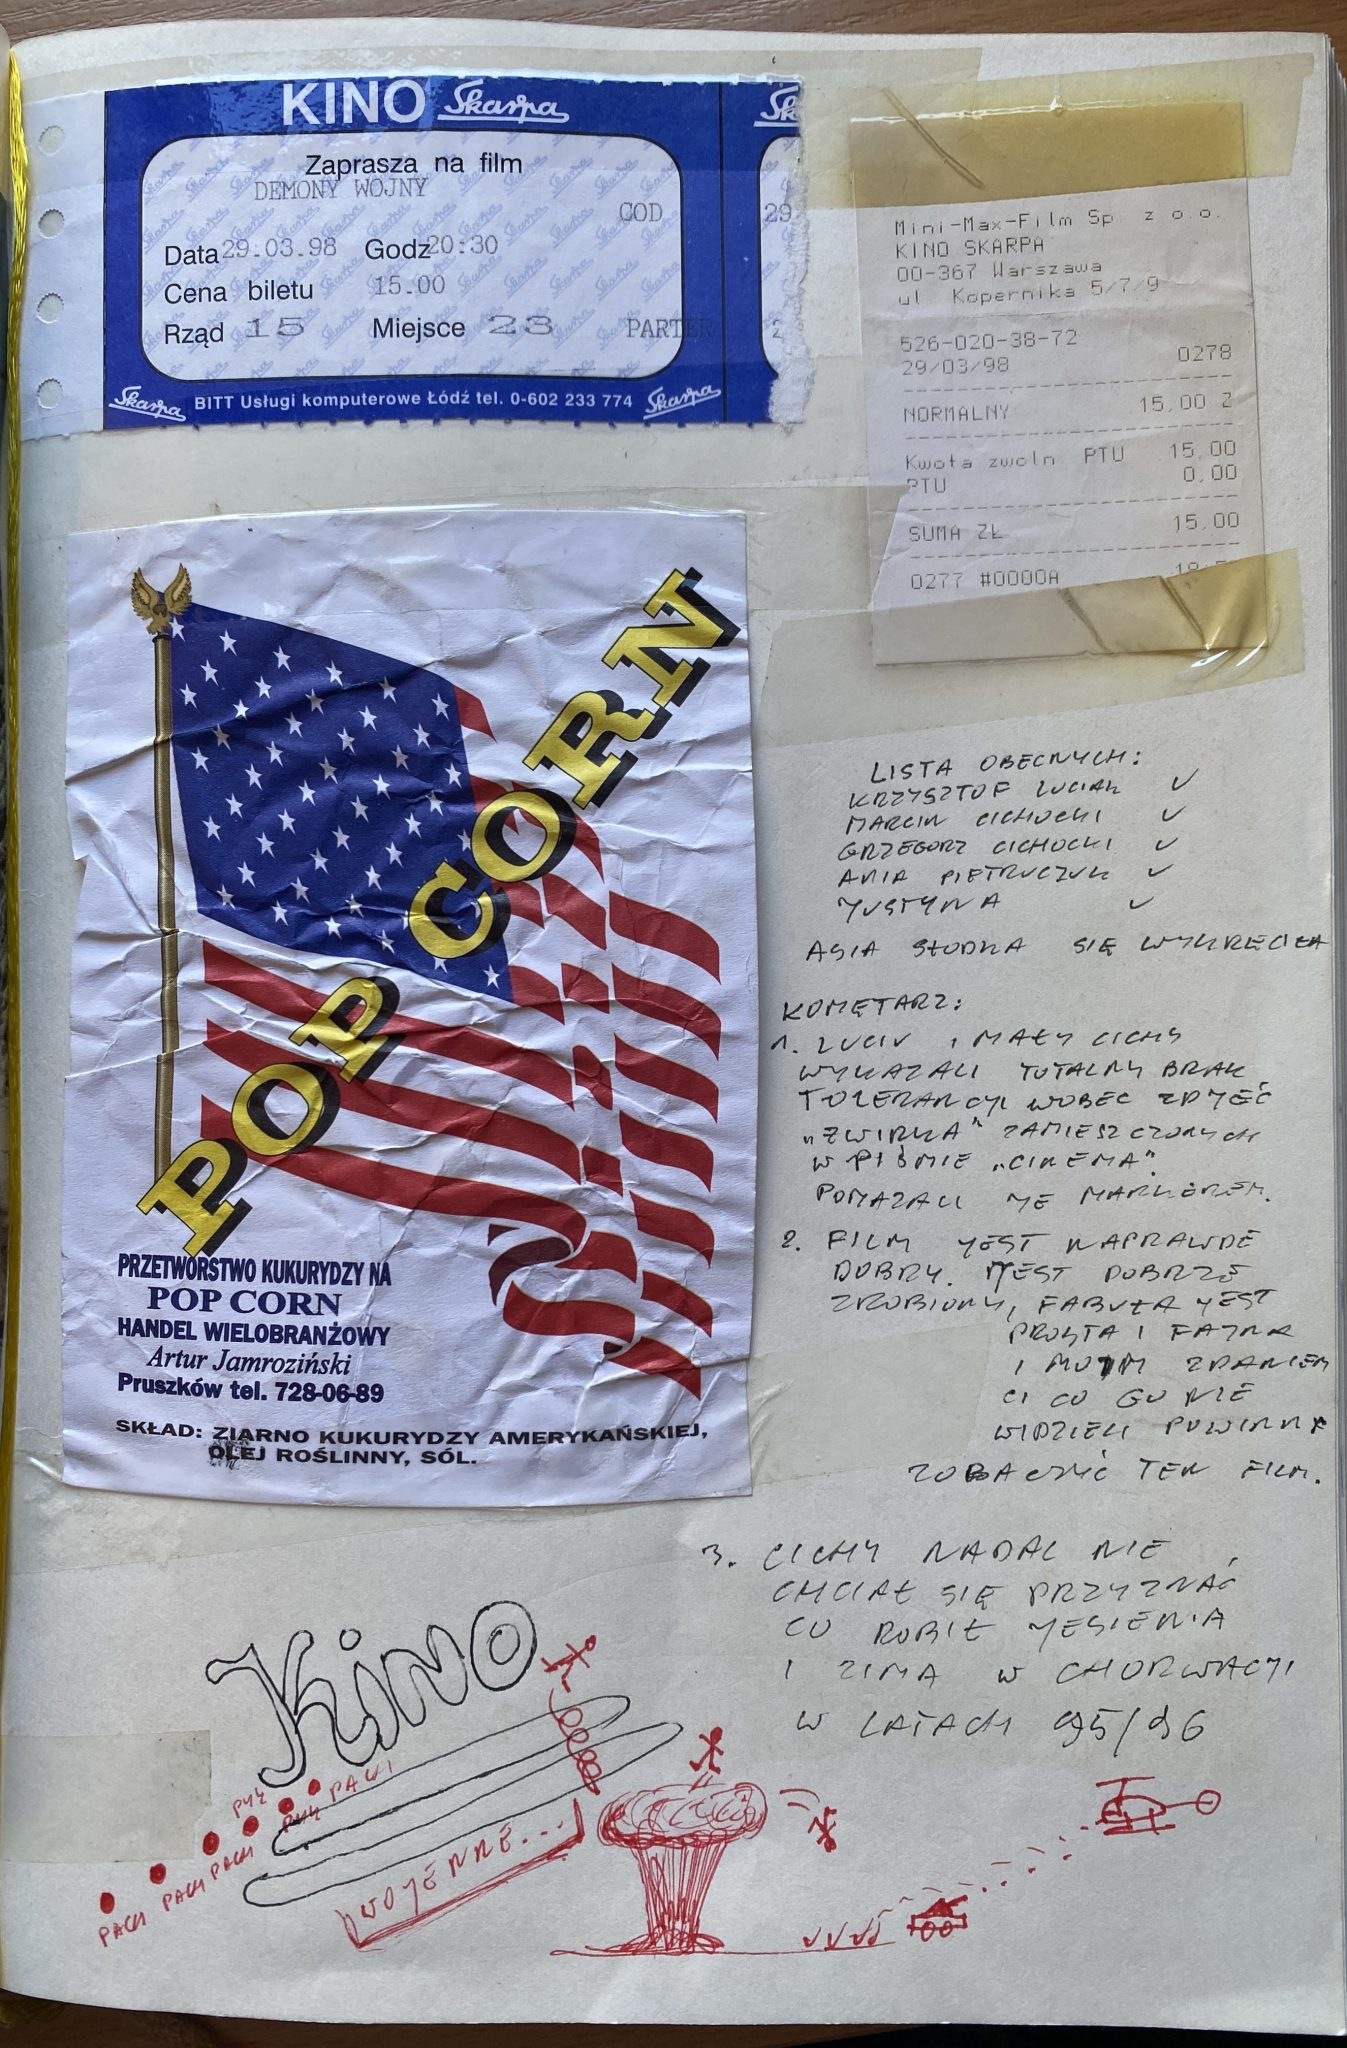 KINO Skarpa
Zaprasza na film
DEMONY WOJNY
COD
Data 29.03.98 Godz 20:30
Cena biletu 15.00
Rząd 15 Miejsce 23 PARTER
Skarpa BITT Usługi komputerowe Łódź tel. 0-602 233 774 Skarpa
Sk
29
2
Mini-Max-Film Sp. z o.o.
KINO SKARPA
00-367 Warszawa
ul Kopernika 5/7/9
526-020-38-72
29/03/98 0278
NORMALNY 15,00 Z
Kwota zwoln PTU 15,00
PTU 0,00
SUMA ZŁ 15,00
0277 #0000A
POP CORN
PRZETWÓRSTWO KUKURYDZY NA
POP CORN
HANDEL WIELOBRANŻOWY
Artur Jamroziński
Pruszków tel. 728-06-89
SKŁAD: ZIARNO KUKURYDZY AMERYKAŃSKIEJ,
OLEJ ROŚLINNY, SÓL.
LISTA OBECNYCH:
KRZYSZTOF LUCIAK ✓
MARCIN CICHOCKI ✓
GRZEGORZ CICHOCKI ✓
ANIA PIETRUCZUK ✓
JUSTYNA ✓
ASIA SŁODKA SIĘ WYKRĘCIŁA
KOMĘTARZ:
1. LUCIU I MAŁY CICHY
WYKAZALI TOTALNY BRAK
TOLERANCJI WOBEC ZDJĘĆ
„ŻWIRKA" ZAMIESZCZONYCH
W PIŚMIE „CINEMA".
POMAZALI JE MARKEREM.
2. FILM JEST NAPRAWDĘ
DOBRY. JEST DOBRZE
ZROBIONY, FABUŁA JEST
PROSTA I FAJNA
I MOIM ZDANIEM
CI CO GO NIE
WIDZIELI POWINNI
ZOBACZYĆ TEN FILM.
3. CICHY NADAL NIE
CHCIAŁ SIĘ PRZYZNAĆ
CO ROBIŁ JESIENIĄ
I ZIMĄ W CHORWACJI
W LATACH 95/96
Kino
WOJENNE...
PACH PACH PACH PYY PACH
PYY